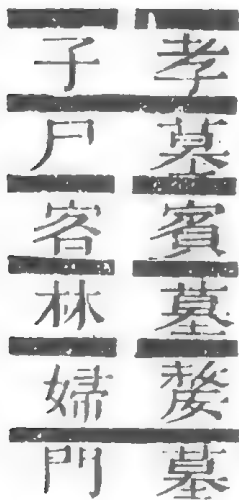 孝子
墓尸
賓客
墓林
嫠婦
墓門